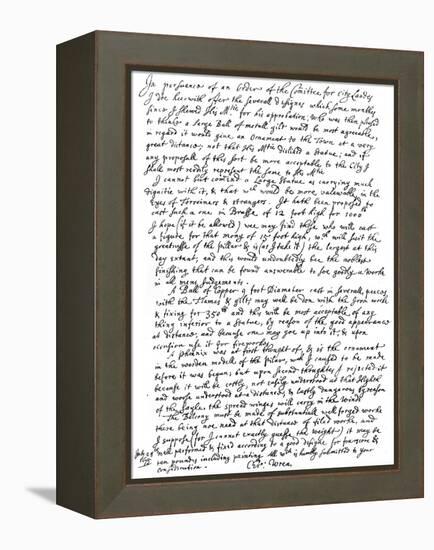 In persuance of an Order of the Comittee for City Landes
I doe heerewith offer the severall designes which some monthes
since I shewed His Mtie for his approbation, who was then pleased
to thinke a large Ball of metall gilt would be most agreeable,
in regard it would give an Ornament to the Town at a very
great distance; not that His Mtie disliked a Statue; and if
any proposall of this sort be more acceptable to the City I
shall most readily represent the same to His Mtie
I cannot but comend a Large Statue as carrying much
dignitie with it, & that wch would be more valewable in the
Eyes of Forreiners & strangers. It hath been proposed to
cast such a one in Brasse of 12 foot high for 1000
I hope (if it be allowed) wee may find those who will cast
a figure for that mony of 15 foot high, wch will suit the
greatnesse of the pillar & is (as I take it) the largest at this
day extant; and this would undoubtedly bee the noblest
finishing that can be found answerable to soe goodly a worke
in all mens Judgements.
A Ball of Copper 9 foot Diameter cast in severall peeces
with the Flames & gilt, may well be don with the Iron worke
& fixing for 350 and this will be most acceptable of any
thing inferior to a Statue, by reason of the good appearance
at distance, and because one may goe up into it; & upon
occasion use it for fireworkes
A phœnix was at first thought of, & is the ornament
in the wooden modell of the pilar, wch I caused to be made
before it was begun; but upon second thoughtes I rejected it
because it will be costly, not easily understood at that Highth
and worse understood at a distance, & lastly dangerous by reason
of the sayle, the spread winges will carry in the Winde
The Balcony must be made of substantiall well forged worke
there being noe need at that distance of filed worke, and
I suppose (for I cannot exactly guesse the weight) it may be
well performed & fixed according to a good designe for fourscore &
ten poundes including painting. All wch is humbly submitted to your
consideration.
July 28
Chr: Wren.